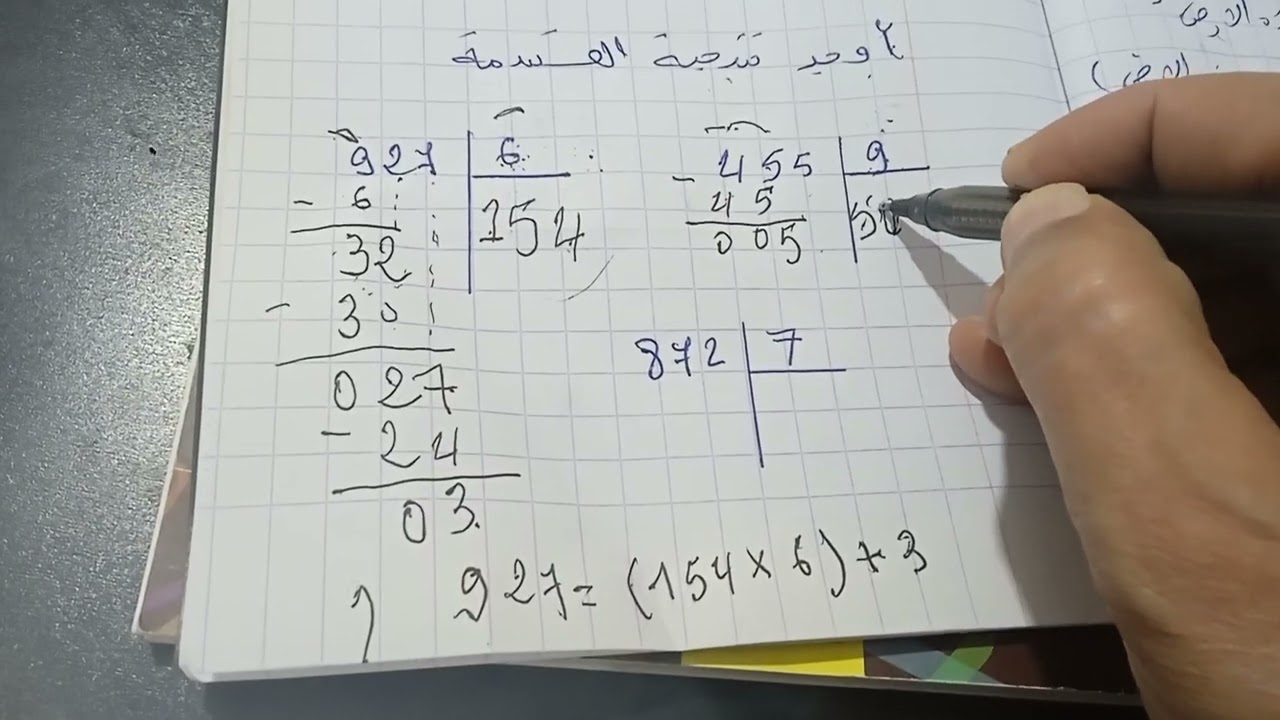 أوجد نتيجة القسمة
927 | 6
- 6 | 154
32
- 30
027
- 24
03
- 455 | 9
45 | 50
005
872 | 7
927 = (154 × 6) + 3